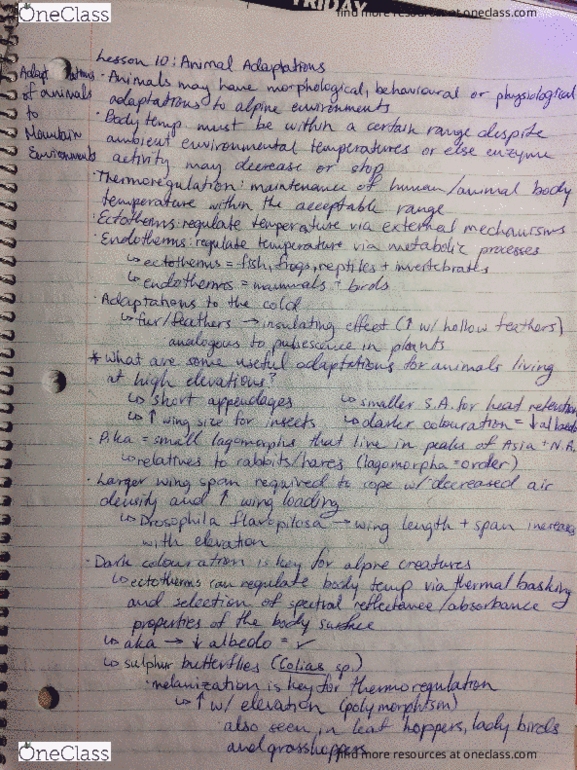 OneClass
FRIDAY
find more resources at oneclass.com
Lesson 10: Animal Adaptations
Adaptations
of animals
to
Mountain
Environments
· Animals may have morphological, behavioural or physiological
adaptations to alpine environments
· Body temp must be within a certain range despite
ambient environmental temperatures or else enzyme
activity may decrease or stop
· Thermoregulation: maintenance of human/animal body
temperature within the acceptable range
· Ectotherms: regulate temperature via external mechanisms
· Endotherms: regulate temperature via metabolic processes
↳ ectotherms = fish, frogs, reptiles + invertebrates
↳ endotherms = mammals + birds
· Adaptations to the cold
↳ fur/feathers → insulating effect (↑ w/ hollow feathers)
analogous to pubescence in plants
* What are some useful adaptations for animals living
at high elevations?
↳ short appendages ↳ smaller S.A. for heat retention
↳ ↑ wing size for insects ↳ darker colouration = ↓ albedo
· Pika = small lagomorphs that live in peaks of Asia + N.A.
↳ relatives to rabbits/hares (lagomorpha = order)
· Larger wing span required to cope w/ decreased air
density and ↑ wing loading
↳ Drosophila flavopilosa → wing length + span increases
with elevation
· Dark colouration is key for alpine creatures
↳ ectotherms can regulate body temp via thermal basking
and selection of spectral reflectance/absorbance
properties of the body surface
↳ aka → ↓ albedo = ✓
↳ sulphur butterflies (Colias sp.)
· melanization is key for thermoregulation
↳ ↑ w/ elevation (polymorphism)
· also seen in leaf hoppers, lady birds
and grasshoppers
OneClass
find more resources at oneclass.com